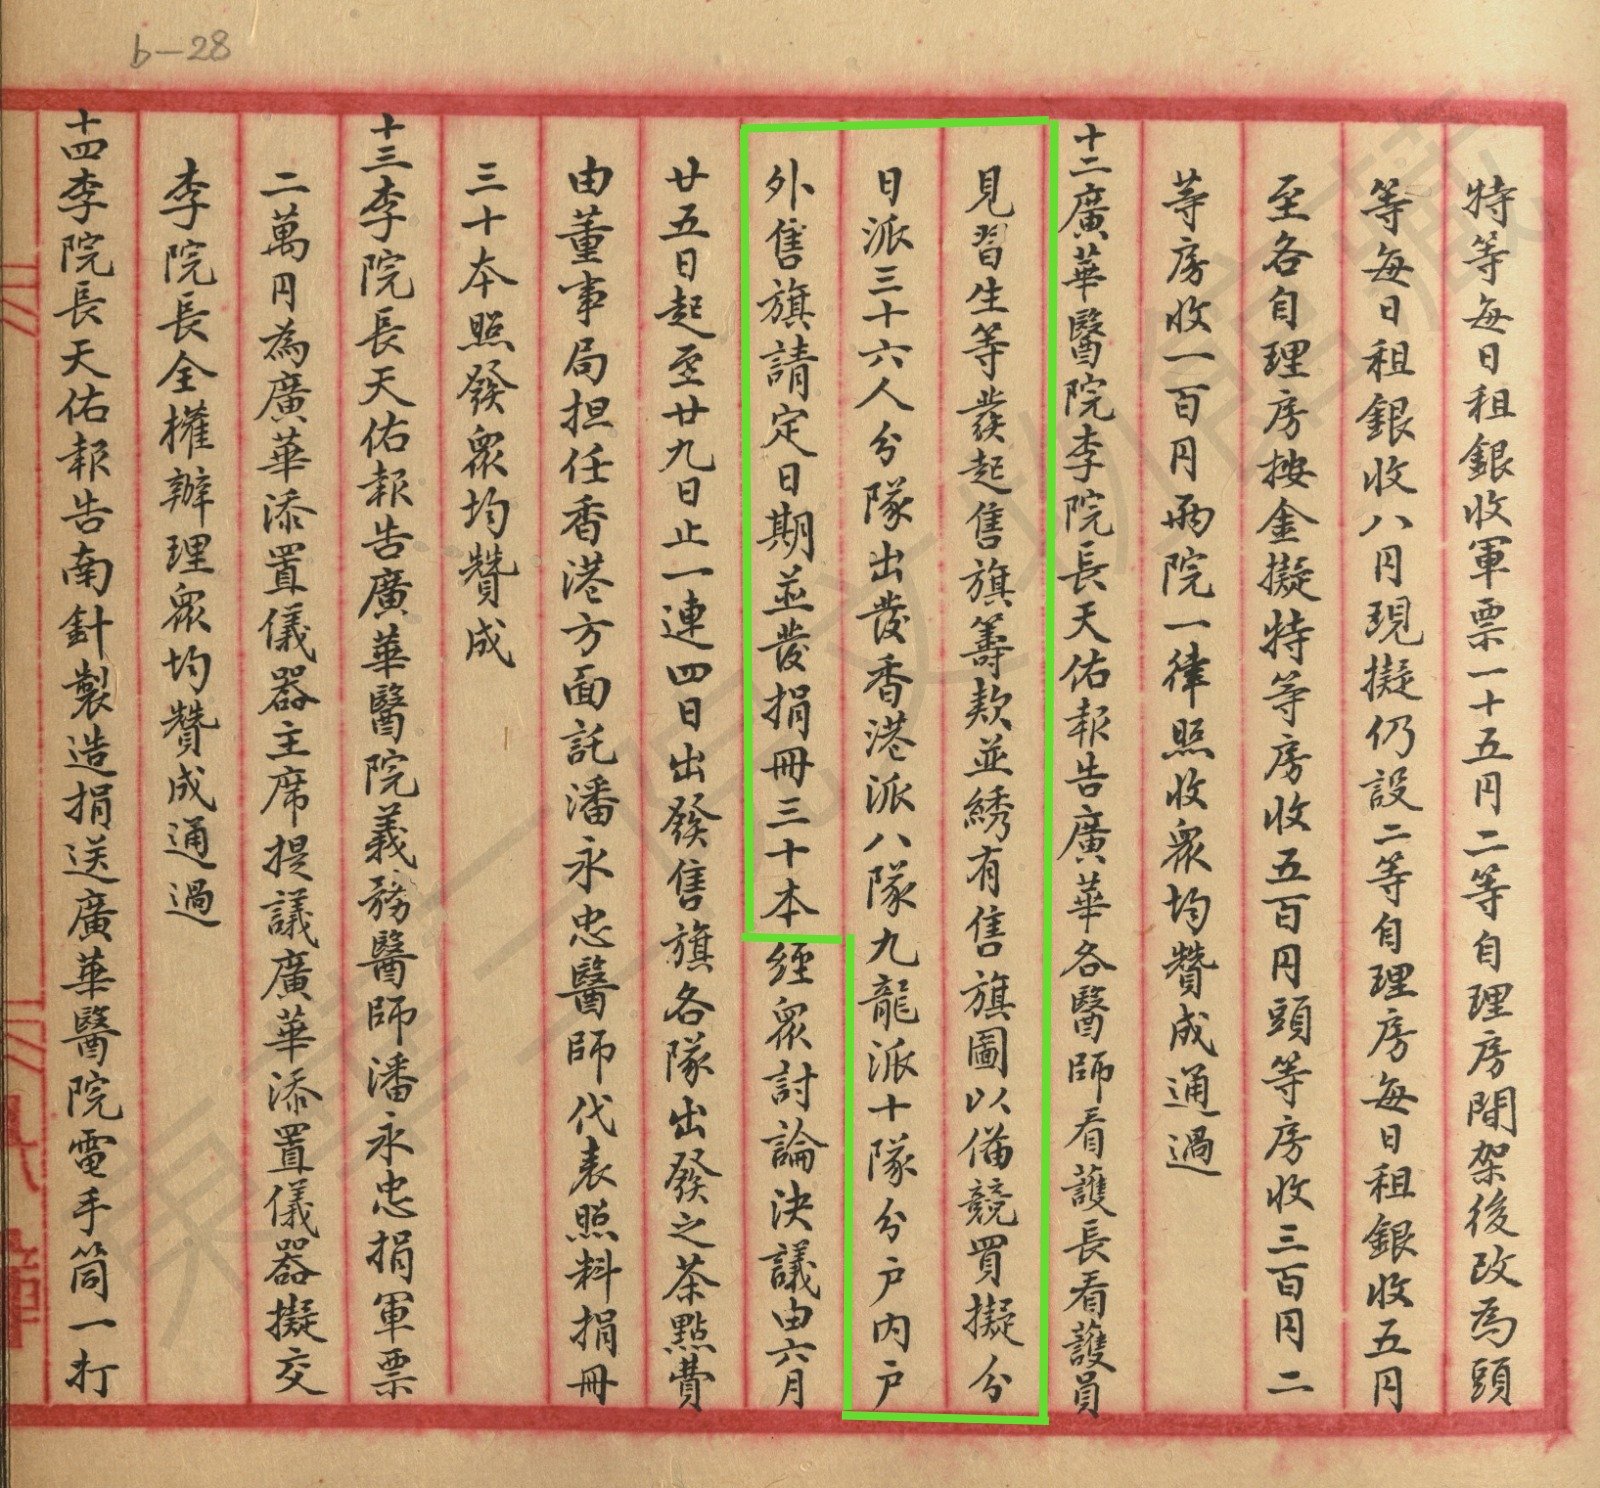 b-28
特等每日租銀收軍票一十五円二等自理房間架後改為頭
等每日租銀收八円現擬仍設二等自理房每日租銀收五円
至各自理房按金擬特等房收五百円頭等房收三百円二
等房收一百円兩院一律照收眾均贊成通過
十二廣華醫院李院長天佑報告廣華各醫師看護長看護員
見習生等發起售旗籌款並綉有售旗圖以備競買擬分
日派三十六人分隊出發香港派八隊九龍派十隊分戶內戶
外售旗請定日期並發捐冊三十本經眾討論決議由六月
廿五日起至廿九日止一連四日出發售旗各隊出發之茶點費
由董事局担任香港方面託潘永忠醫師代表照料捐冊
三十本照發眾均贊成
十三李院長天佑報告廣華醫院義務醫師潘永忠捐軍票
二萬円為廣華添置儀器主席提議廣華添置儀器擬交
李院長全權辦理眾均贊成通過
十四李院長天佑報告南針製造捐送廣華醫院電手筒一打
東華三院文物館藏